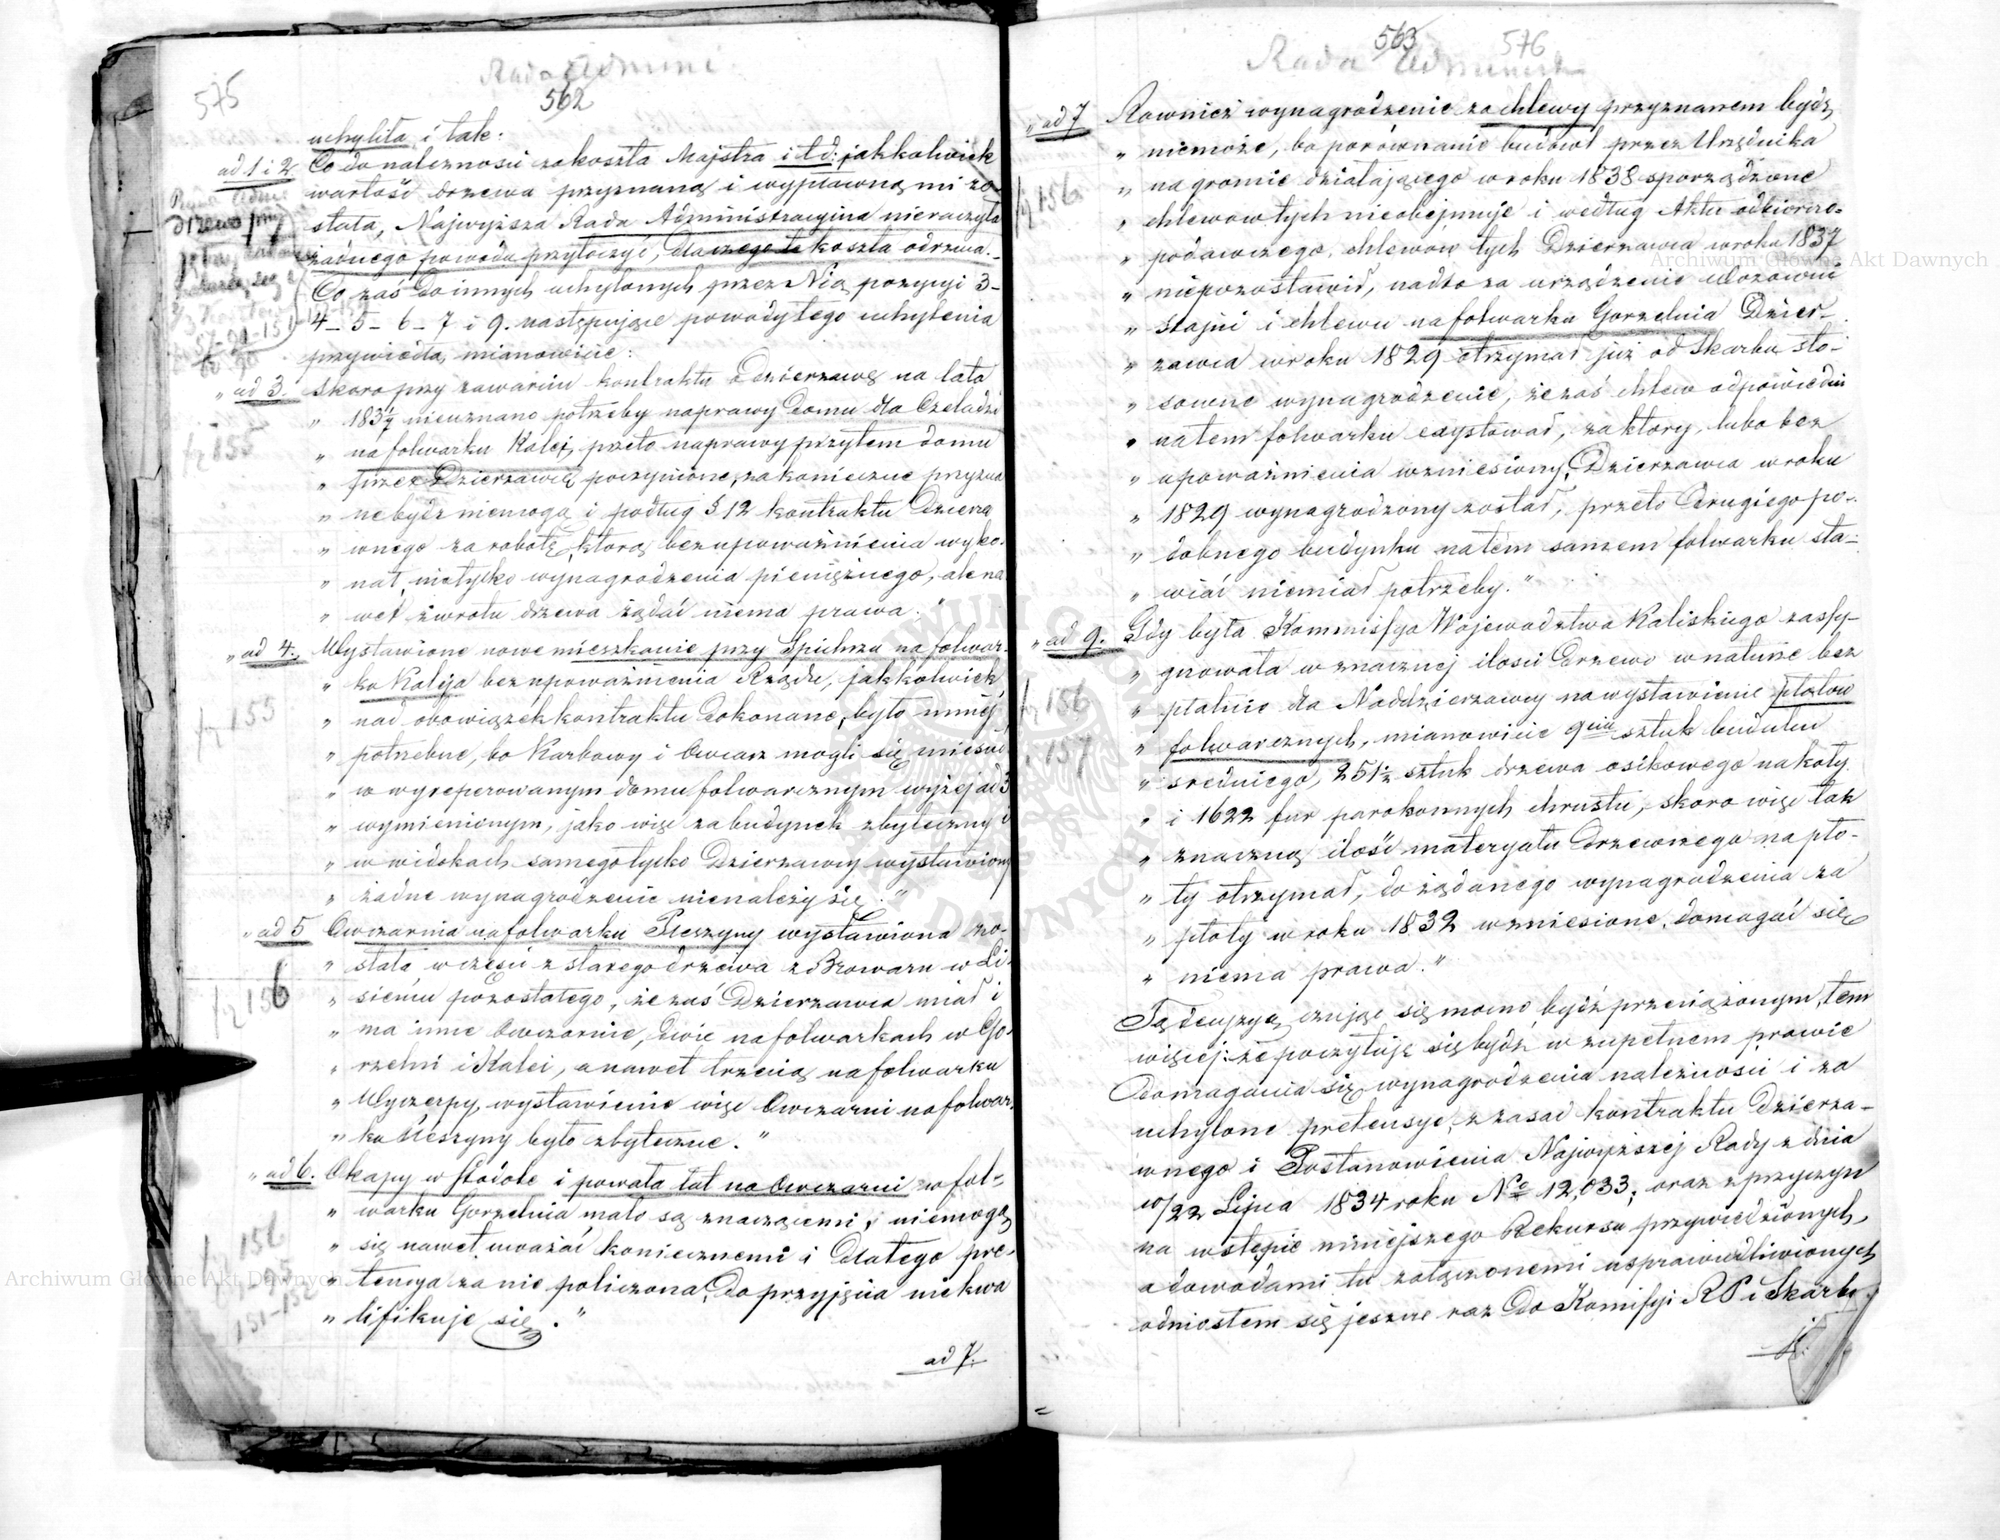 575
Rada Admini
562
uchyliła i tak:
ad 1 i 2 Co do należności za koszta Majstra i t d: jakkolwiek
wartość drzewa przyznaną i wypławną mi zo-
stała, Najwyższa Rada Administracyjna nieraczyła
żadnego powodu przytoczyć, dla czego te koszta odrzuca.
Co zaś do innych uchylonych przez Nią pozycyi 3-
4- 5- 6- 7 i 9. następujące powody tego uchylenia
przywiodła, mianowicie:
„ ad 3. Skoro przy zawarciu kontraktu o dzierzawę na lata
„ nieuznano potrzeby naprawy Domu dla Czeladzi
„ na folwarku Kalej, przeto naprawy przytem domu
„ przez Dzierzawcę poczynione, za konieczne przyzna
„ ne bydź niemogą, i podług § 12 kontraktu Dzierża
„ wnego za robotę, którą bez upoważnienia wyko-
„ nał, nietylko wynagrodzenia pieniężnego, ale na
„ wet zwrotu drzewa żądać niema prawa."
fz 155
„ ad 4. Wystawione nowe mieszkanie przy Spichrzu na folwar-
„ ku Kaleja bez upoważnienia Rządu, jakkolwiek
„ nad obowiązek kontraktu dokonane, było mniej
„ potrzebne, bo Karbowy i Owczarz mogli się mieścić
„ w wyreperowanym domu folwarcznym wyżej ad 3
„ wymienionym, jako więc za budynek zbyteczny i
„ w widokach samego tylko Dzierzawcy wystawiony
„ żadne wynagrodzenie nienależy się."
fz 155
„ ad 5 Owczarnia na folwarku Pieszyny wystawiona zo-
„ stała w części z starego drzewa z Browaru w Li-
„ sieńcu pozostałego, że zaś Dzierzawca miał i
„ ma inne Owczarnie, dwie na folwarkach w Go-
„ rzelni i Kalei, a nawet trzecią na folwarku
„ Wyczerpy, wystawienie więc Owczarni na folwar-
„ ku Pieszyny było zbyteczne."
fz 156
„ ad 6. Okapy w stodole i powała tał na Owczarni w fol-
„ warku Gorzelnia mało są znaczącemi, i niemogą
„ się nawet uważać koniecznemi i dlatego pre-
„ tensya za nie policzona, do przyjęcia niekwa
„ lifikuje się."
fz 156
151-152
ad 7.
563 576
Rada Administr
„ ad 7 Rownież wynagrodzenie za chlewy przyznanem bydź
„ niemoże, bo porównanie budowl przez Urzędnika
„ na gromie działającego w roku 1838 sporządzone
„ chlewow tych nieobejmuje i według Aktu odbiorczo-
„ podawczego, chlewow tych Dzierzawca w roku 1837
„ niepozostawił, nadto za urządzenie Wozowni
„ stajni i chlewu na folwarku Gorzelnia Dzier-
„ zawca w roku 1829 otrzymał już od Skarbu sto-
„ sowne wynagrodzenie, że zaś chlew odpowiedni
„ na tem folwarku exystował, za ktory, lubo bez
„ upoważnienia wzniesiony, Dzierzawca w roku
„ 1829 wynagrodzony został, przeto drugiego po-
„ dobnego budynku na tém samem folwarku sta-
„ wiać niemiał potrzeby."
fz 156
„ ad 9. Gdy była Kommissya Wojewodztwa Kaliskiego zassy-
„ gnowała w znacznej ilosci Drzewo w naturze bez
„ płatnie dla Naddzierzawcy na wystawienie płotow
„ folwarcznych, mianowicie 9ciu sztuk budulcu
„ sredniego, 251½ sztuk drzewa osikowego na koły
„ i 1622 fur parokonnych chrustu, skoro więc tak
„ znaczną ilość materyału Drzewnego na pło-
„ ty otrzymał, do żądanego wynagrodzenia za
„ płoty w roku 1832 wzniesione, domagać się
„ niema prawa."
fz 156
157
Tą decyzyą czując się mocno bydź przeciążonym, tem
więcej: że poczytuję się bydź w zupełnem prawie
domagania się wynagrodzenia należności i za
uchylone pretensye, z zasad kontraktu Dzierza-
wnego i Postanowienia Najwyższej Rady z dnia
10/22 Lipca 1834 roku No 12,033; oraz z przyczyn
na wstępie niniejszego Rekursu przywiedzionych,
a dowodami tu załączonemi usprawiedliwionych
odniosłem się jeszcze raz do Komisyi R P i Skarbu